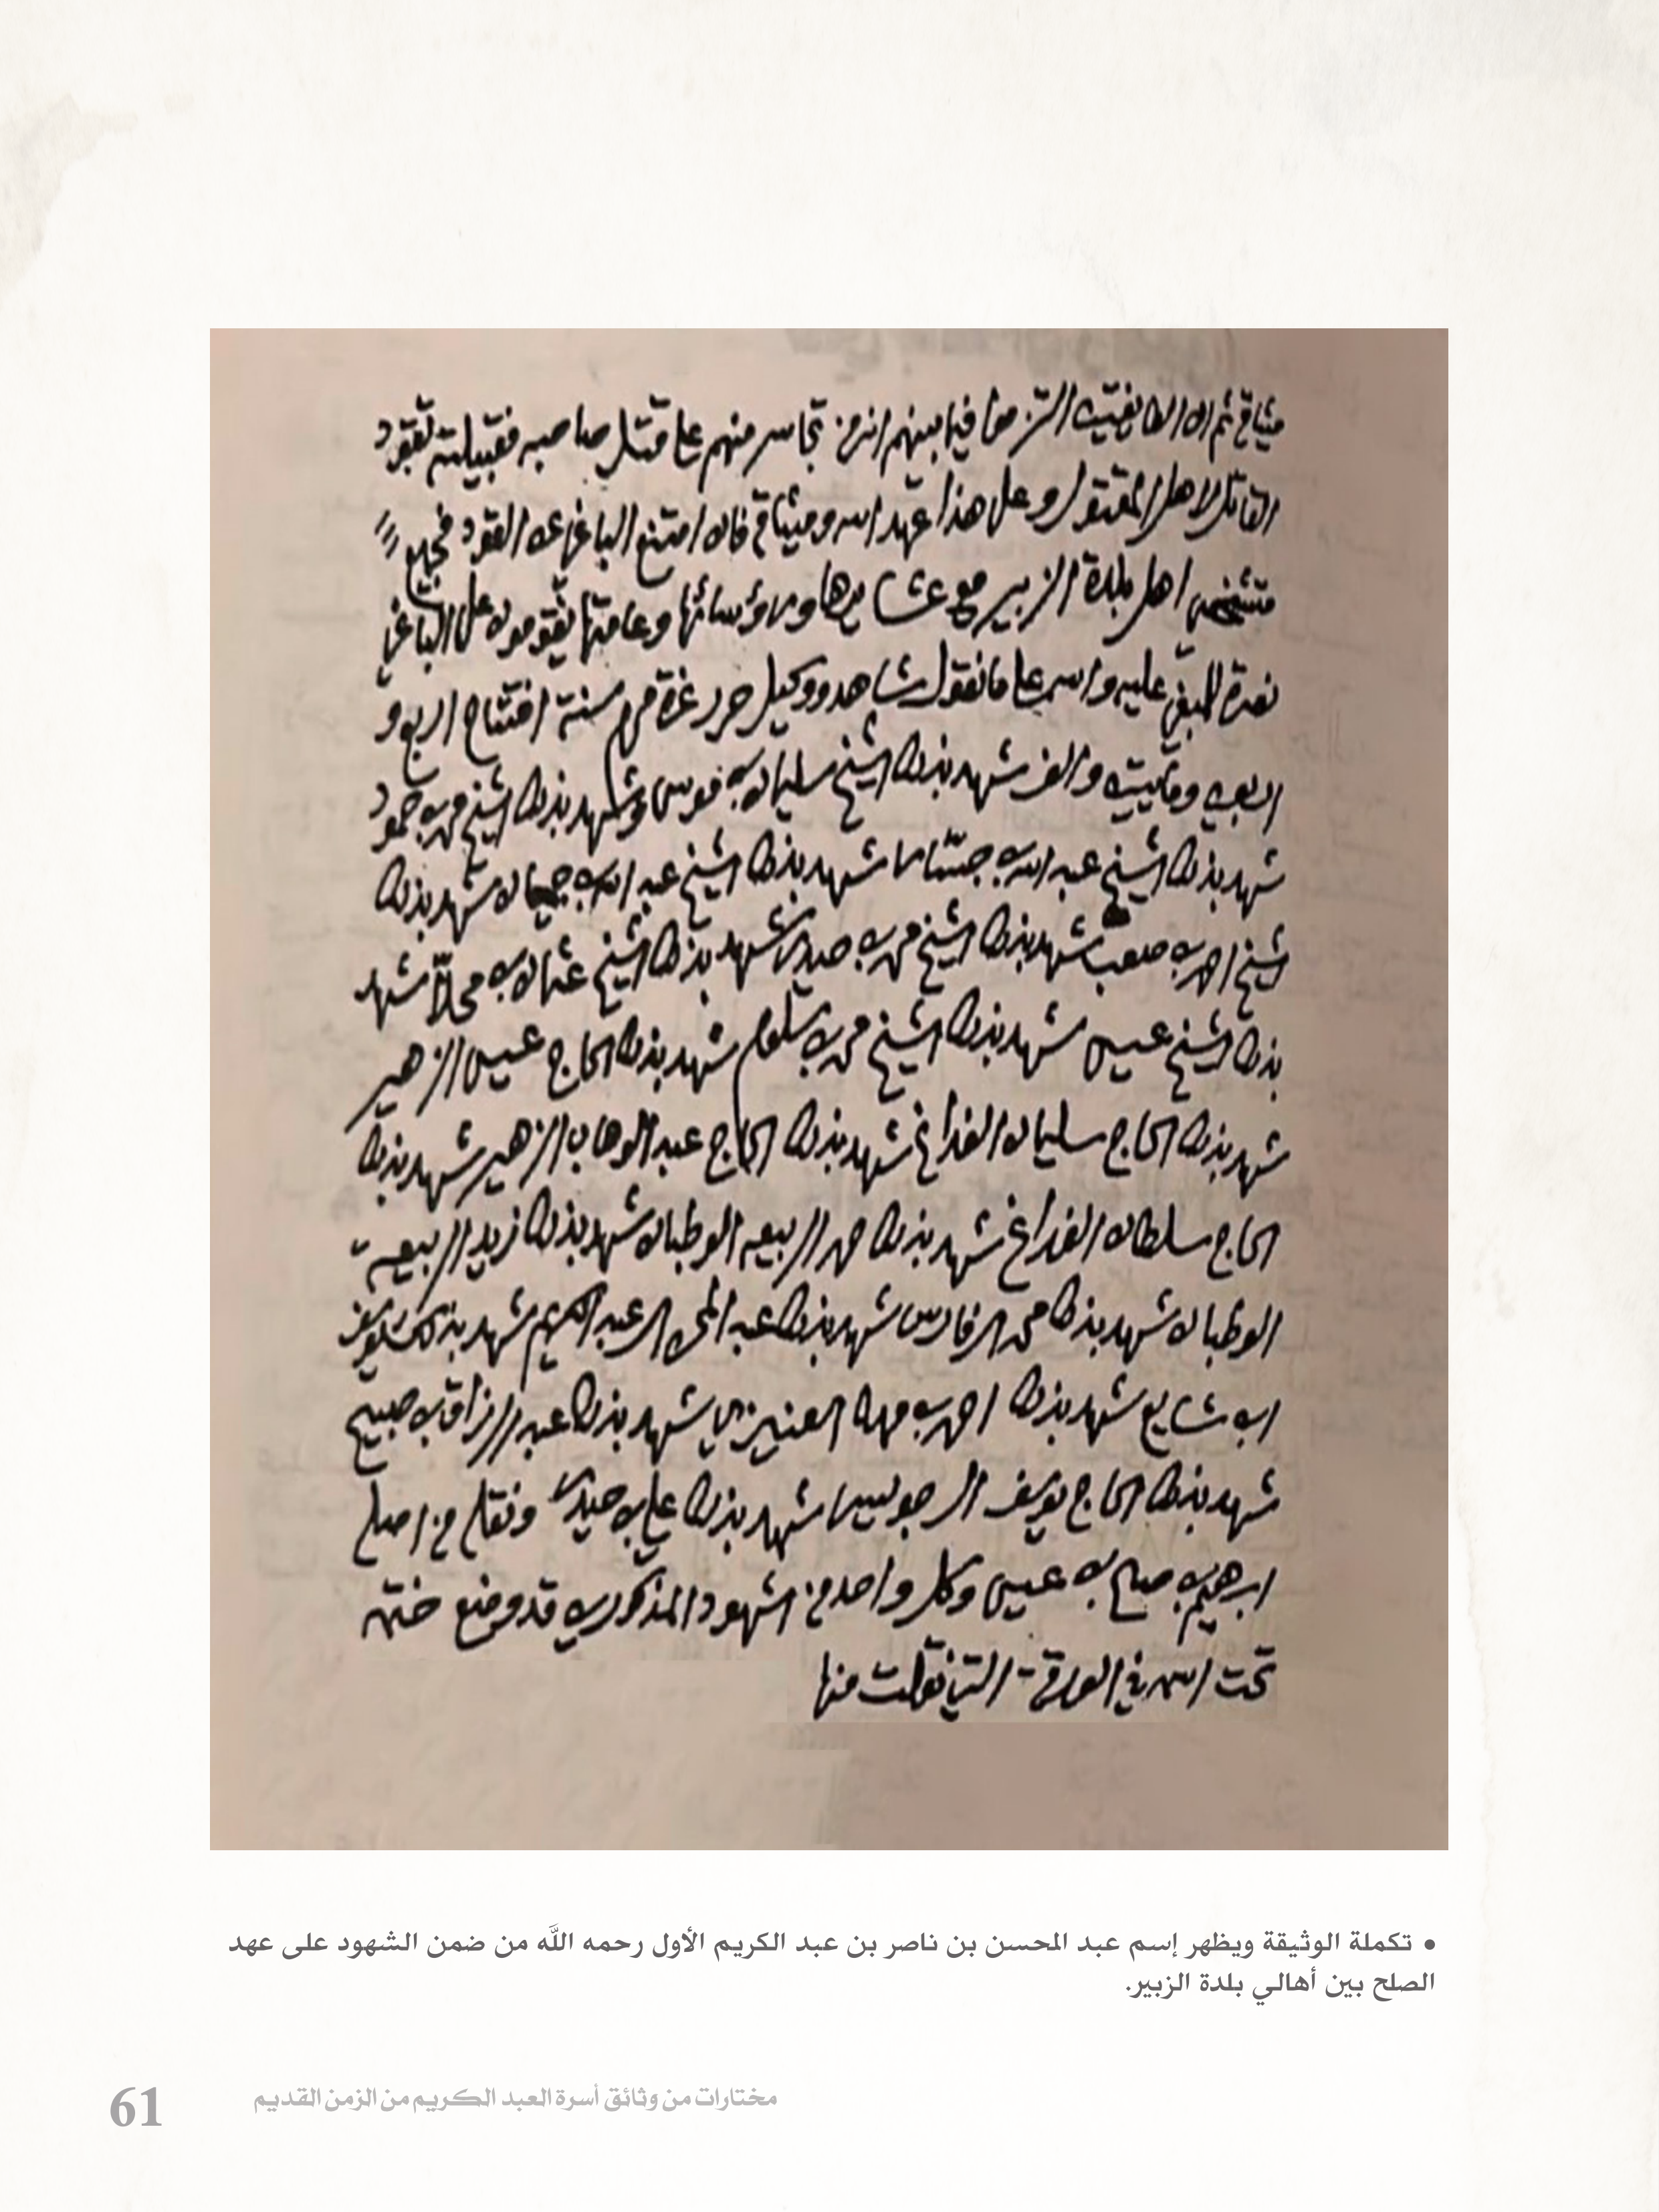 ميثاق ثم ان الطايفتين التزموا فيما بينهم ان من تجاسر منهم على قتل صاحبه فقبيلته تقود
القاتل لاهل المقتول وعلى هذا عهد الله وميثاق فان امتنع الباغي عن القود فجميع
متشخصين اهل بلدة الزبير مع عشايرها ورؤسائها وعامتها يقومون على الباغي
نصرة للمبغي عليه والله على ما نقول شاهد ووكيل حرر غرة محرم سنة افتتاح اربع و
اربعين ومايتين والف شهد بذلك الشيخ سليمان بن موسى وشهد بذلك الشيخ محمد بن حمود
شهد بذلك الشيخ عبد الله بن شهد بذلك الشيخ عبد الله بن شهد بذلك
الشيخ احمد بن صعب شهد بذلك الشيخ محمد بن شهد بذلك الشيخ عثمان بن شهد
بذلك الشيخ عيسى شهد بذلك الشيخ محمد بن سلوم شهد بذلك الحاج عيسى الزهير
شهد بذلك الحاج سليمان الفداغ شهد بذلك الحاج عبد الوهاب الزهير شهد بذلك
الحاج سلطان الفداغ شهد بذلك الربيعه الوطبان شهد بذلك زيد الربيعة
الوطبان شهد بذلك محمد الفارس شهد بذلك عبد المحسن العبد الكريم شهد بذلك يوسف
ابن شايع شهد بذلك احمد بن مهنا العنيزي شهد بذلك عبد الرزاق بن صبيح
شهد بذلك الحاج يوسف شهد بذلك علي بن ونقله من اصله
ابرهيم بن صالح بن عيسى وكل واحد من الشهود المذكورين قد وضع ختمه
تحت اسمه في الورقة التي نقلت منها
• تكملة الوثيقة ويظهر إسم عبد المحسن بن ناصر بن عبد الكريم الأول رحمه اللَّه من ضمن الشهود على عهد
الصلح بين أهالي بلدة الزبير.
مختارات من وثائق أسرة العبد الكريم من الزمن القديم
61